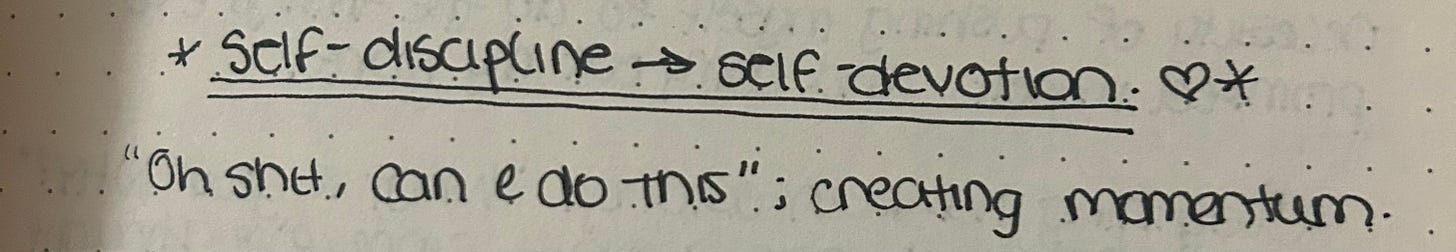 * self-discipline → self-devotion. ♡*
"Oh shit, can I do this"; creating momentum.